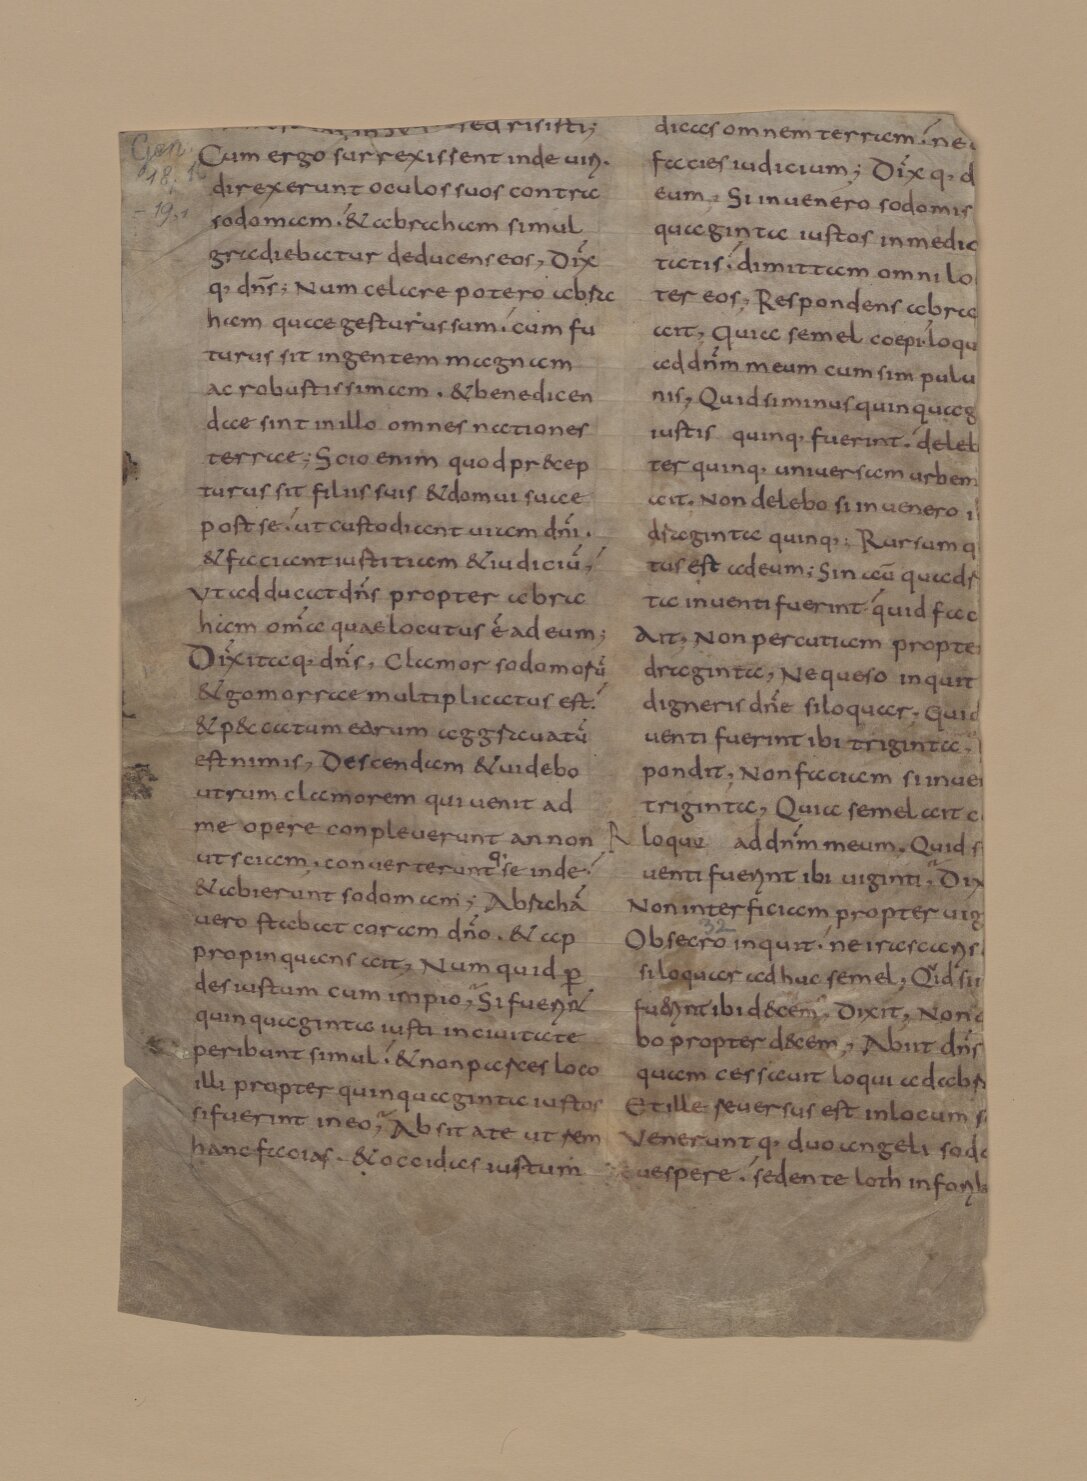 Gen.
18, 1
- 19, 1
sed risisti;
Cum ergo surrexissent inde uiri.
direxerunt oculos suos contra
sodomam. & abraham simul
gradiebatur deducens eos, Dix̄
q, dn̄s; Num celare potero abra
ham quae gesturus sum. cum fu
turus sit in gentem magnam
ac robustissimam. & benedicen
dae sint in illo omnes nationes
terrae; Scio enim quod pr&cep
turus sit filiis suis & domui suae
post se. ut custodiant uiam dn̄i.
& faciant iustitiam & iudiciū,
Vt adducat dn̄s propter abra
ham om̄ia quae locutus ē ad eum;
Dix̄ itaq, dn̄s, Clamor sodomorū
& gomorrae multiplicatus est.
& p&catum earum aggrauatū
est nimis, Descendam & uidebo
utrum clamorem qui uenit ad
me opere conpleuerunt an non
ut sciam. conuerteruntq, se inde.
& abierunt sodomam; Abrahā
uero stabat coram dn̄o. & ap
propinquans ait, Num quid p̱
des iustum cum impio, Si fuerint
quinquaginta iusti in ciuitate
peribunt simul. & non parces loco
illi propter quinquaginta iustos
si fuerint in eo, Absit a te ut rem
hanc facias. & occidas iustum
dicas omnem terram. ne
facies iudicium; Dix̄ q, d
eum, Si inuenero sodomis
quaginta iustos in medio
tatis. dimittam omni lo
ter eos, Respondens abra
ait, Quia semel coepi loqu
ad dn̄m meum cum sim pulu
nis, Quid si minus quinquag
iustis quinq, fuerint. deleb
ter quinq, uniuersam urbem
ait. Non delebo si inuenero i
draginta quinq,; Rursum q
tus est ad eum; Sin aū quadr
ta inuenti fuerint quid fac
Ait, Non percutiam propte
draginta, Ne queso inquit
digneris dn̄e si loquar, Quid
uenti fuerint ibi triginta,
pondit, Non faciam si inue
triginta, Quia semel ait c
loquar ad dn̄m meum, Quid s
uenti fuerint ibi uiginti, Dix
Non interficiam propter uig
32
Obsecro inquit. ne irascaris
si loquar adhuc semel, Qid si
fuerint ibi d&cem, Dixit, Non d
bo propter d&cem, Abiit dn̄s
quam cessauit loqui ad abr
Et ille reuersus est in locum s
Venerunt q, duo angeli sodo
uespere. sedente loth in forib